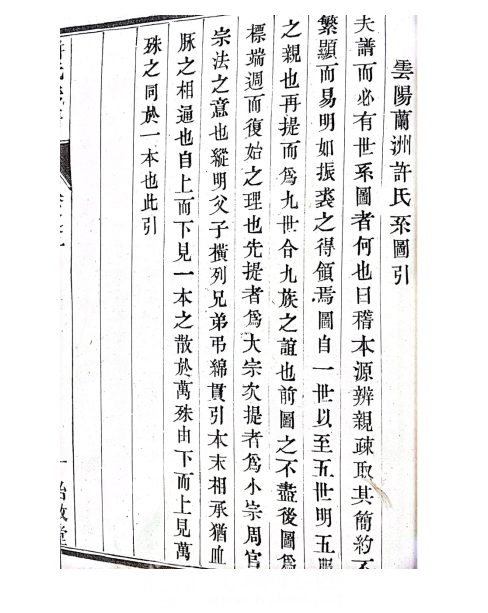 雲陽蘭洲許氏系圖引
夫譜而必有世系圖者何也曰稽本源辨親疎取其簡約不
繁顯而易明如振裘之得領焉圖自一世以至五世明五服
之親也再提而為九世合九族之誼也前圖之不盡後圖為
標端週而復始之理也先提者為大宗次提者為小宗周官
宗法之意也縱明父子橫列兄弟弔綿貫引本末相承猶血
脉之相通也自上而下見一本之散於萬殊由下而上見萬
殊之同於一本也此引